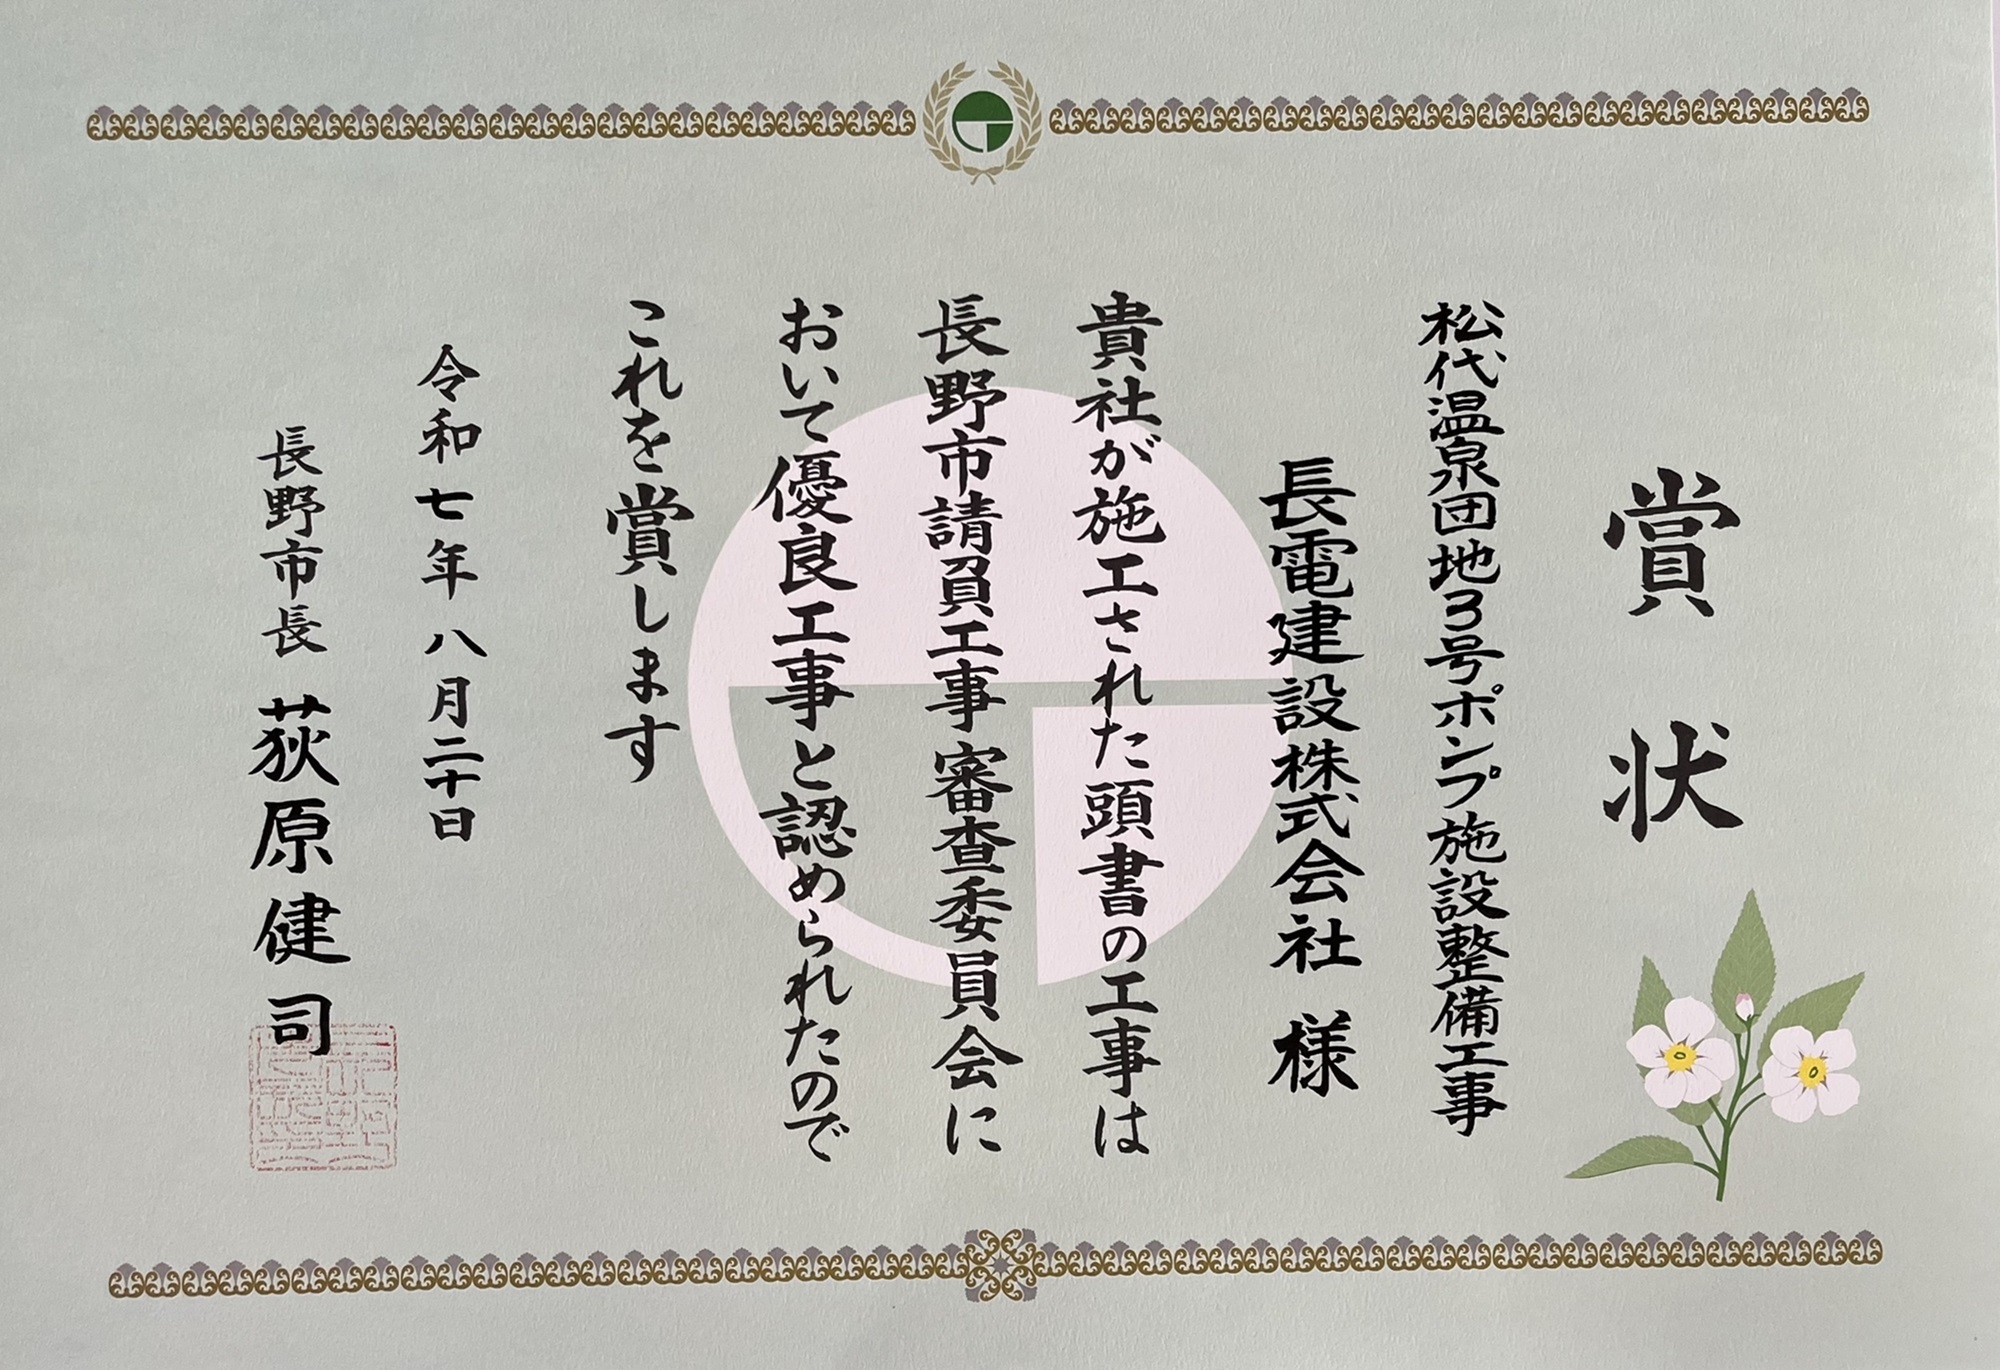 賞状
松代温泉団地3号ポンプ施設整備工事
長電建設株式会社 様
貴社が施工された頭書の工事は
長野市請負工事審査委員会に
おいて優良工事と認められたので
これを賞します
令和七年八月二十日
長野市長 荻原健司